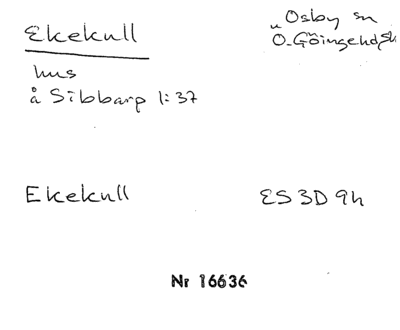 Ekekull
Osby sn
Ö. Göingehd sk
hus
å Sibbarp 1:37
Ekekull
ES 3D 9h
Nr 16636